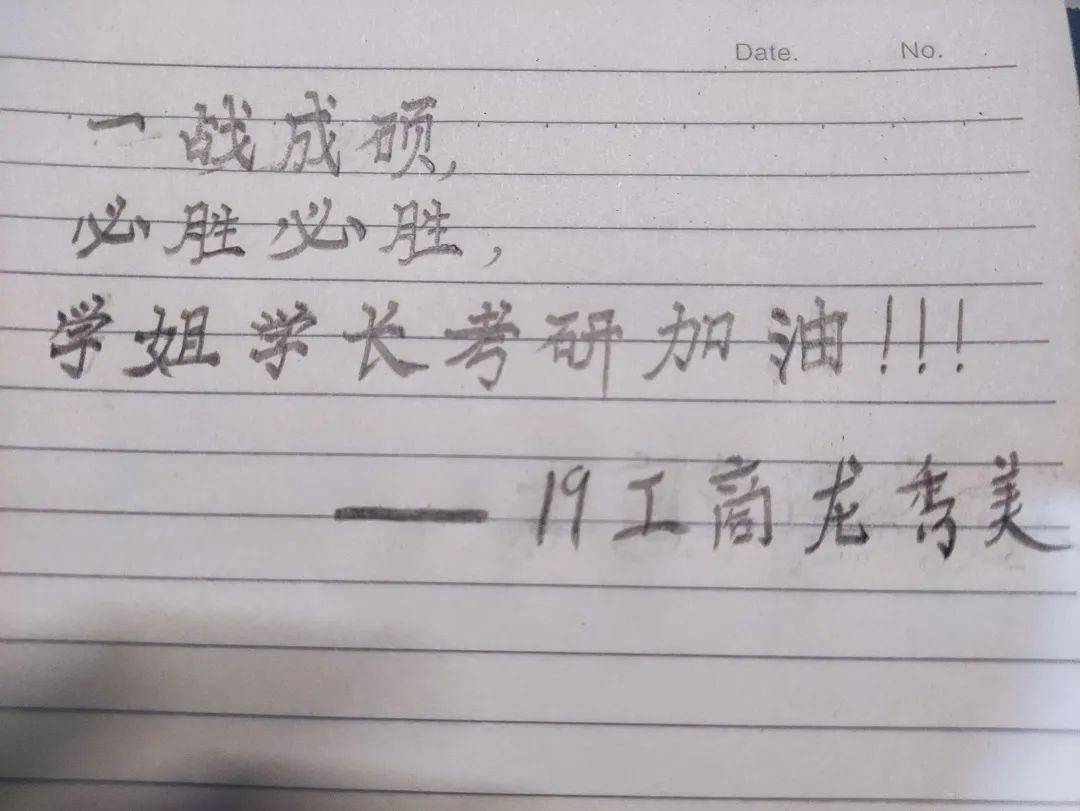 Date. No.
一战成硕,
必胜必胜,
学姐学长考研加油!!!
——19工商龙秀美